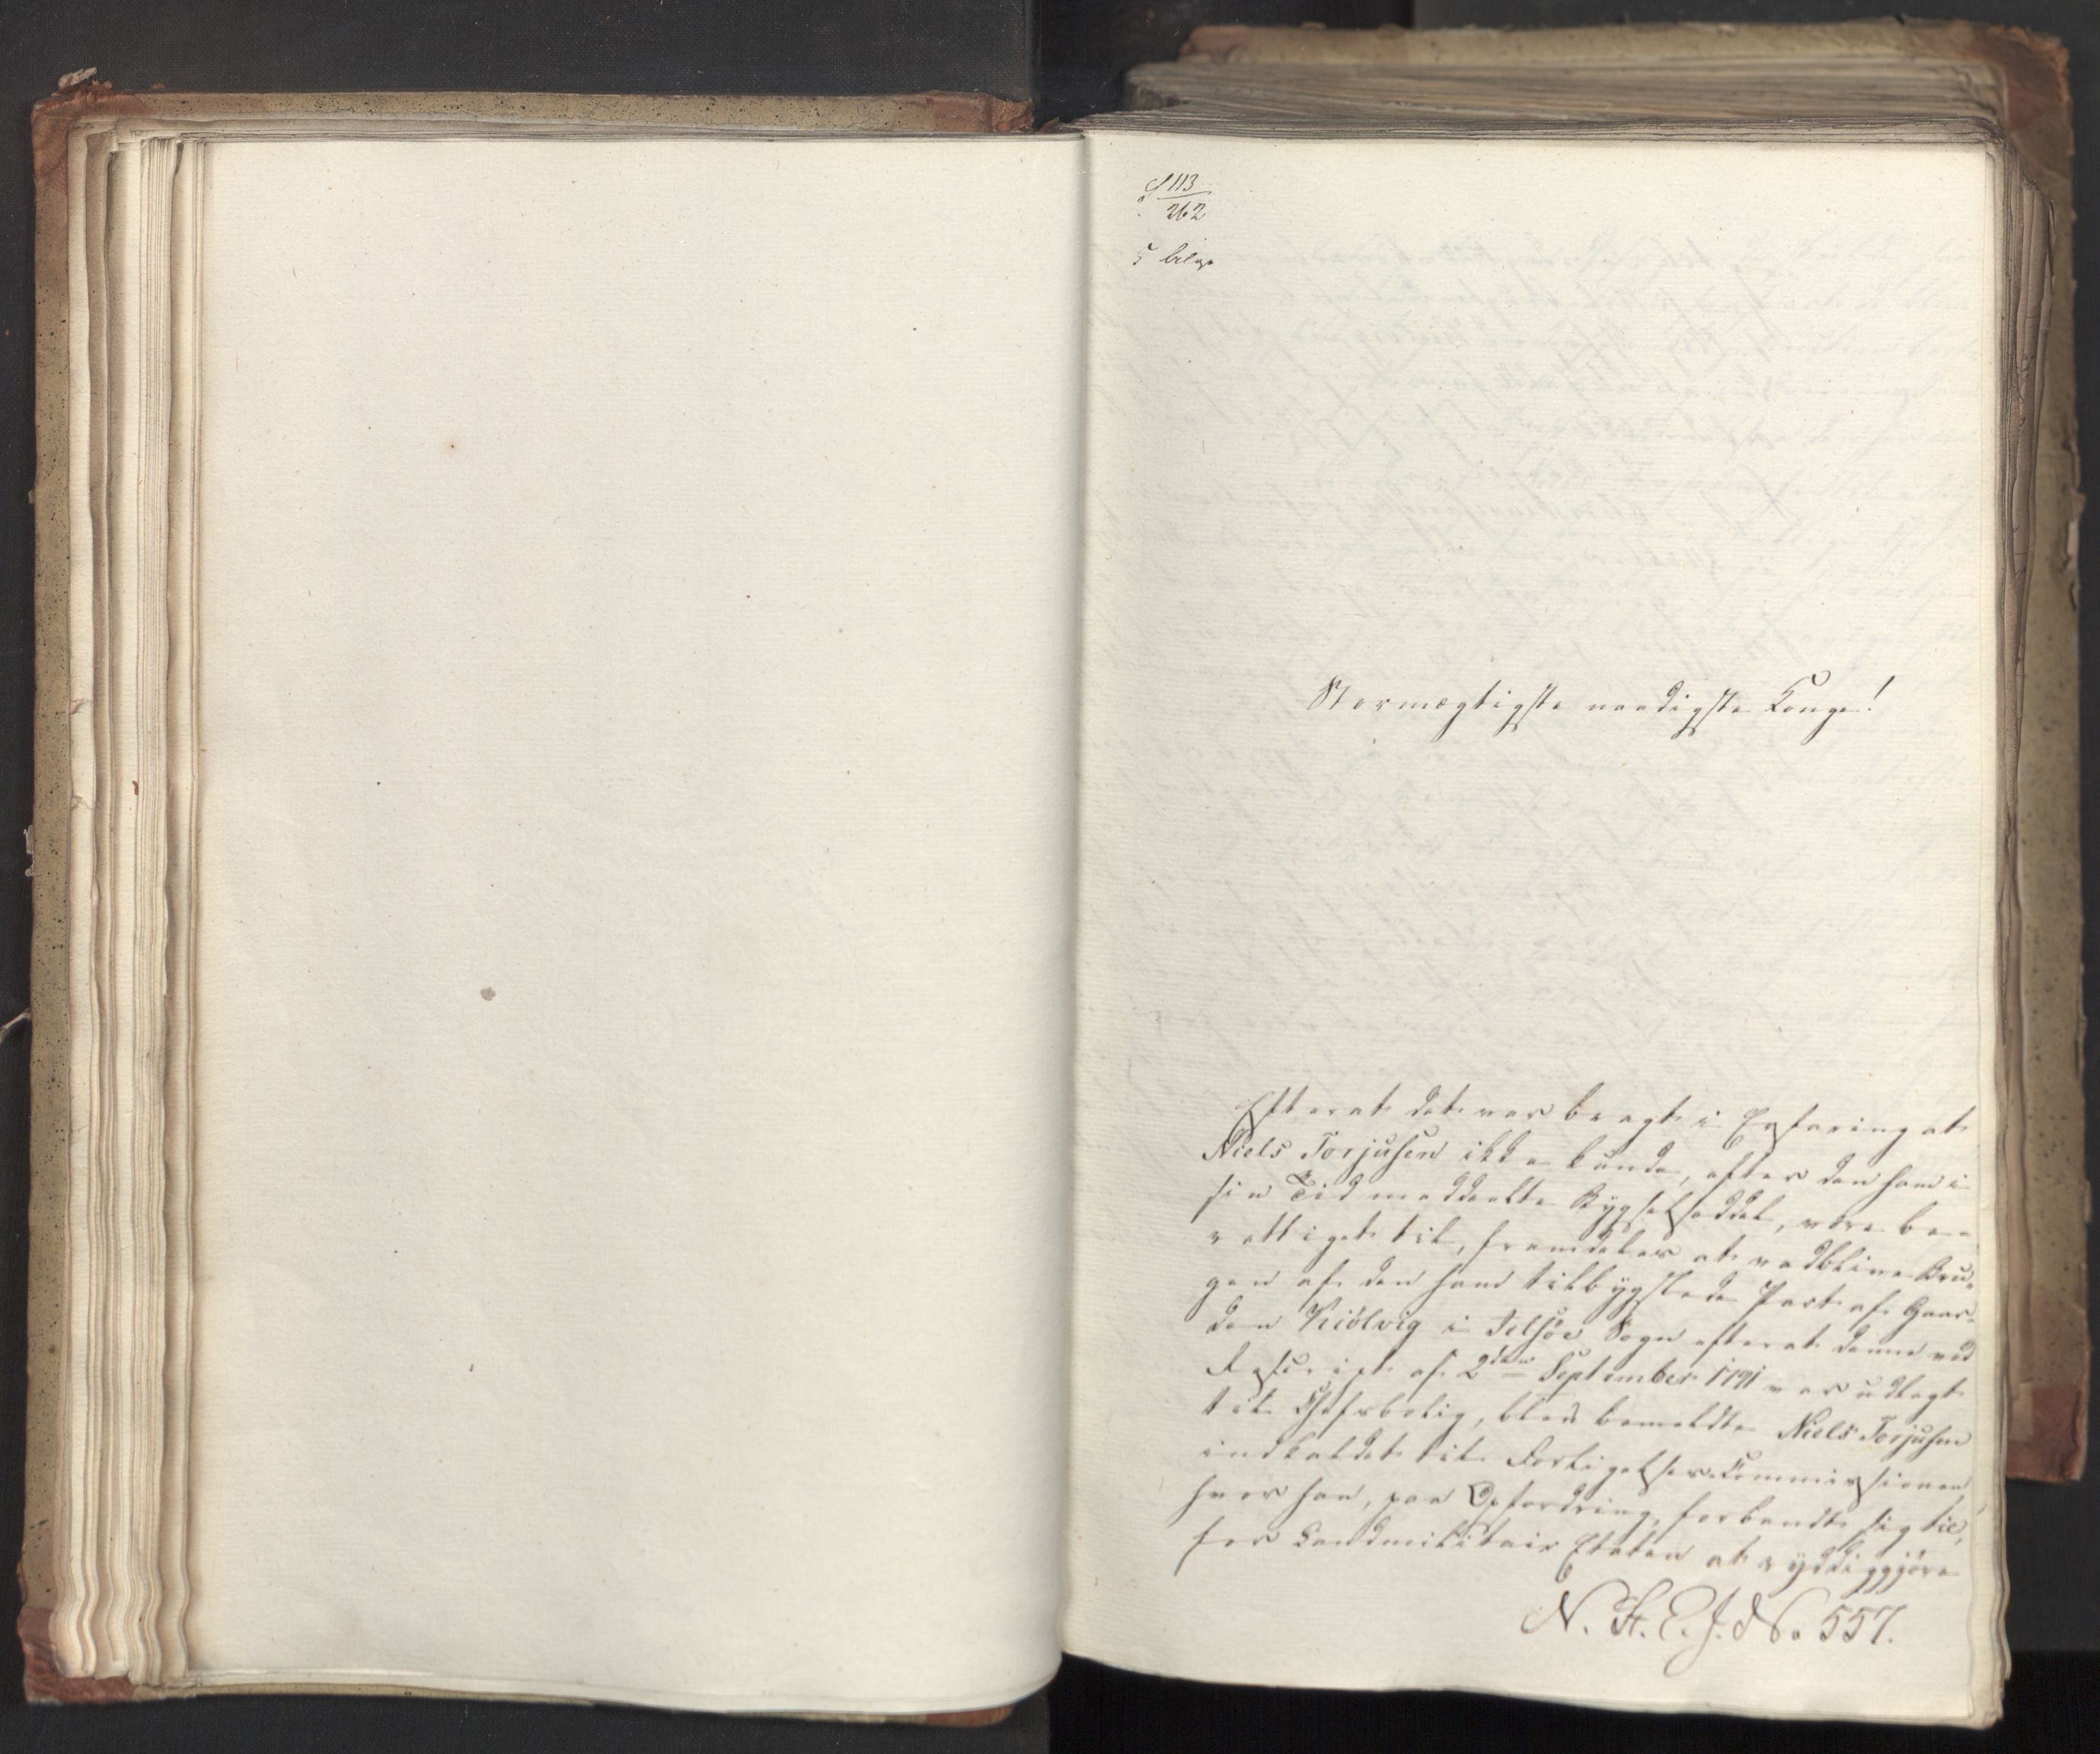 113
262
5 bilage
Stormægtigste naadigste Konge!
Efterat det var bragt i Erfaring at
Niels Torjusen ikke kunde, efter den ham i
sin Tid meddeelte Bygselseddel, være be-
rettiget til, fremdeles at vedblive Bru-
gen af den ham tilbygslede Part af Gaar-
den Kiölvig i Jelsöe Sogn efterat denne ved
Rescript af 2den September 1791 var udlagt
til Chefsbolig, blev bemeldte Niels Torjusen
indkaldet til Forligelses-Commissionen
hvor han, paa Opfordring, forbandt sig til,
for Landmilitair Etaten at ryddiggjöre
N. H. E. J. No 557.